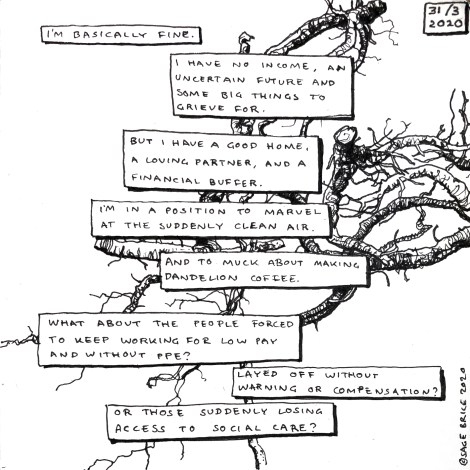 31/3
2020
I'M BASICALLY FINE.
I HAVE NO INCOME, AN
UNCERTAIN FUTURE AND
SOME BIG THINGS TO
GRIEVE FOR.
BUT I HAVE A GOOD HOME,
A LOVING PARTNER, AND A
FINANCIAL BUFFER.
I'M IN A POSITION TO MARVEL
AT THE SUDDENLY CLEAN AIR.
AND TO MUCK ABOUT MAKING
DANDELION COFFEE.
WHAT ABOUT THE PEOPLE FORCED
TO KEEP WORKING FOR LOW PAY
AND WITHOUT PPE?
LAYED OFF WITHOUT
WARNING OR COMPENSATION?
OR THOSE SUDDENLY LOSING
ACCESS TO SOCIAL CARE?
@SAGE BRICE 2020